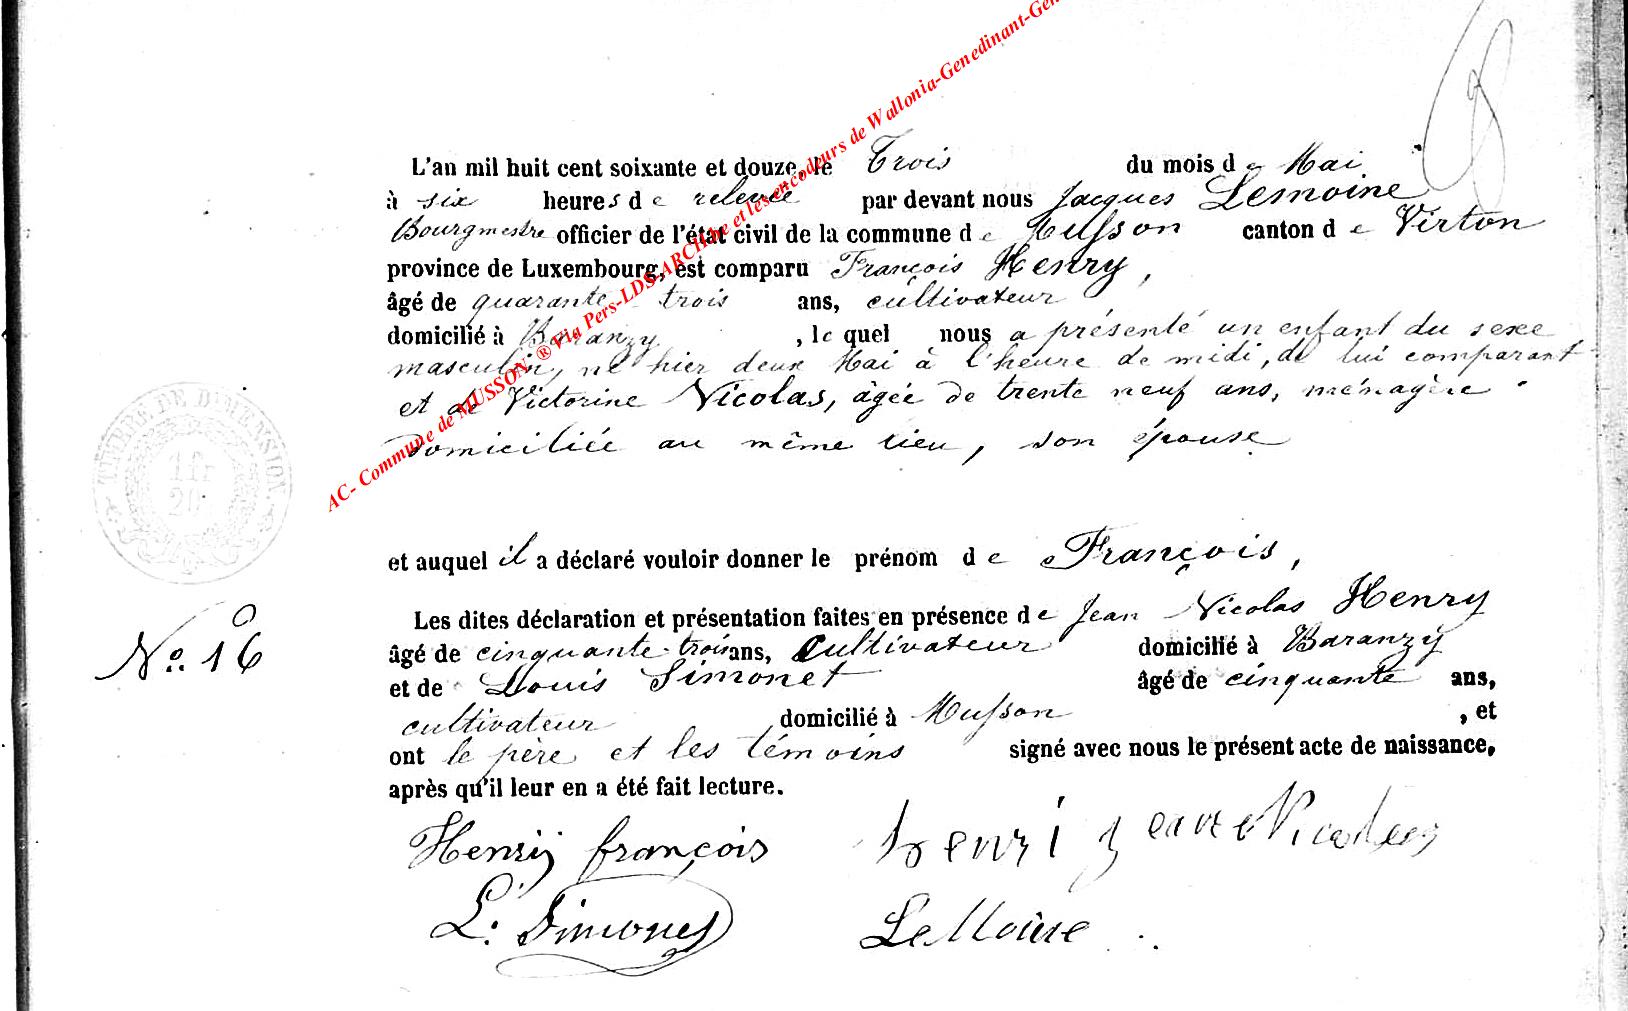 AC- Commune de MUSSON ® Via Pers-LDS-ARCH.be et les encodeurs de Wallonia-Genedinant-Gen
L'an mil huit cent soixante et douze, le Trois du mois de Mai
à six heures de relevée par devant nous Jacques Lemoine
Bourgmestre officier de l'état civil de la commune de Musson canton de Virton
province de Luxembourg, est comparu François Henry,
âgé de quarante trois ans, cultivateur
domicilié à Baranzy, lequel nous a présenté un enfant du sexe
masculin, né hier deux Mai à l'heure de midi, de lui comparant
et de Victorine Nicolas, âgée de trente neuf ans, ménagère
domiciliée au même lieu, son épouse
et auquel il a déclaré vouloir donner le prénom de François,
Les dites déclaration et présentation faites en présence de Jean Nicolas Henry
âgé de cinquante trois ans, Cultivateur domicilié à Baranzy
et de Louis Simonet âgé de cinquante ans,
cultivateur domicilié à Musson, et
ont le père et les témoins signé avec nous le présent acte de naissance,
après qu'il leur en a été fait lecture.
Henry françois henri jean Nicolas
L. Simonet LeMoine
TIMBRE DE DIMENSION.
1 fr
20
No. 16